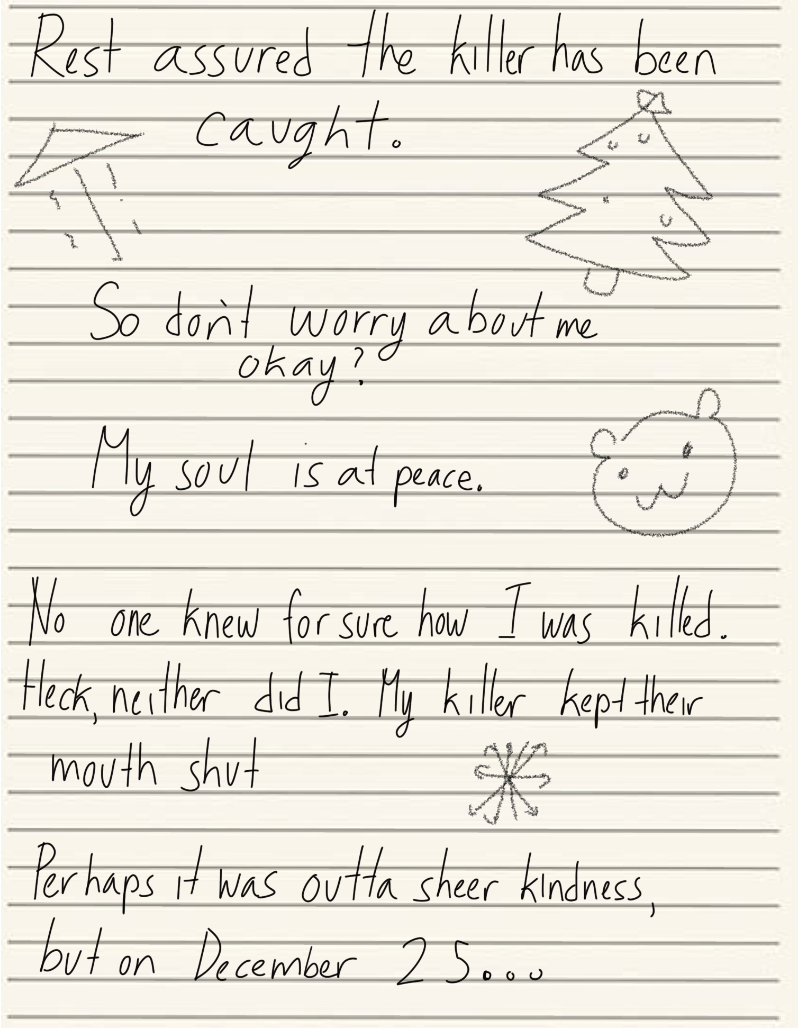 Rest assured the killer has been
caught.
So don't worry about me
okay?
My soul is at peace.
No one knew for sure how I was killed.
Heck, neither did I. My killer kept their
mouth shut
Perhaps it was outta sheer kindness,
but on December 25...